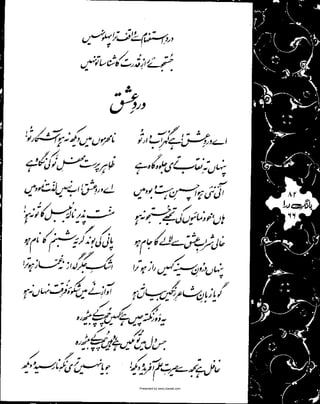 دردِ استفہام سے واقف ترا پہلو نہیں
جستجوئے رازِ قدرت کا شناسا تو نہیں
دردِ عشق
اے دردِ عشق! ہے گہرِ آب دار تو
نامحرموں میں دیکھ نہ ہو آشکار تو!
پنہاں تہِ نقاب تری جلوہ گاہ ہے
ظاہر پرست محفلِ نو کی نگاہ ہے
آئی نئی ہوا چمنِ ہست و بود میں
اے دردِ عشق! اب نہیں لذت نمود میں
ہاں، خود نمائیوں کی تجھے جستجو نہ ہو
منت پذیر نالۂ بلبل کا تو نہ ہو!
خالی شرابِ عشق سے لالے کا جام ہو
پانی کی بوند گریۂ شبنم کا نام ہو
پنہاں درونِ سینہ کہیں راز ہو ترا
اشکِ جگر گداز نہ غماز ہو ترا
گویا زبانِ شاعرِ رنگیں بیاں نہ ہو
آوازِ نے میں شکوۂ فرقت نہاں نہ ہو
یہ دور نکتہ چیں ہے، کہیں چھپ کے بیٹھ رہ
جس دل میں تو مکیں ہے، وہیں چھپ کے بیٹھ رہ
غافل ہے تجھ سے حیرتِ علم آفریدہ دیکھ!
جویا نہیں تری نگہِ نارسیدہ دیکھ
۸۲
بانگِ درا
۶۶
Presented by www.ziaraat.com